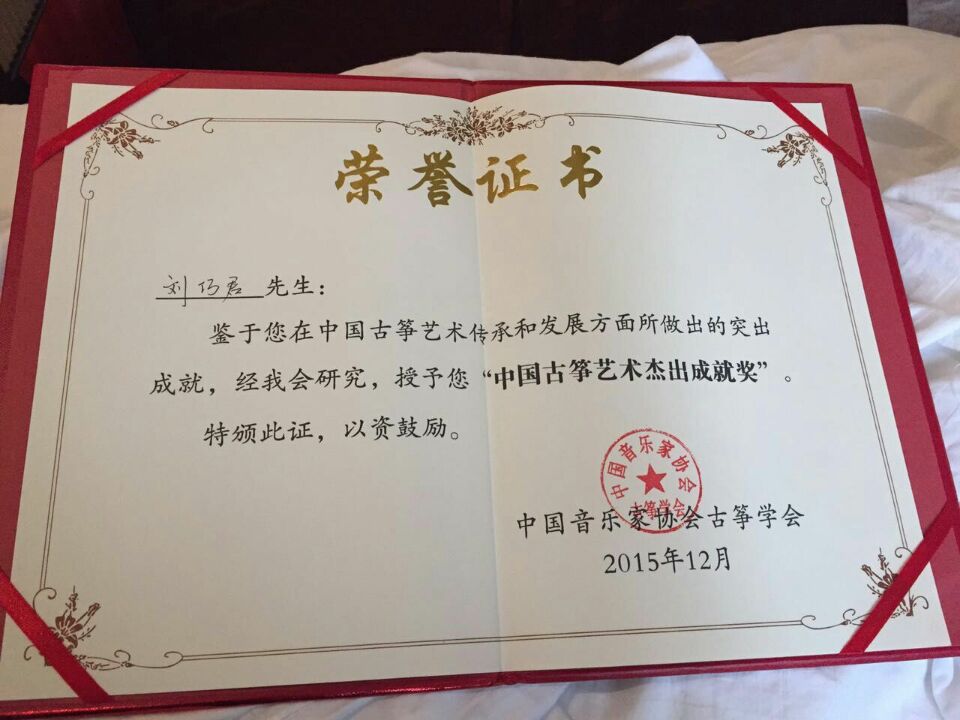 荣誉证书
刘巧君 先生：
鉴于您在中国古筝艺术传承和发展方面所做出的突出
成就，经我会研究，授予您“中国古筝艺术杰出成就奖”。
特颁此证，以资鼓励。
中国音乐家协会
古筝学会
中国音乐家协会古筝学会
2015年12月